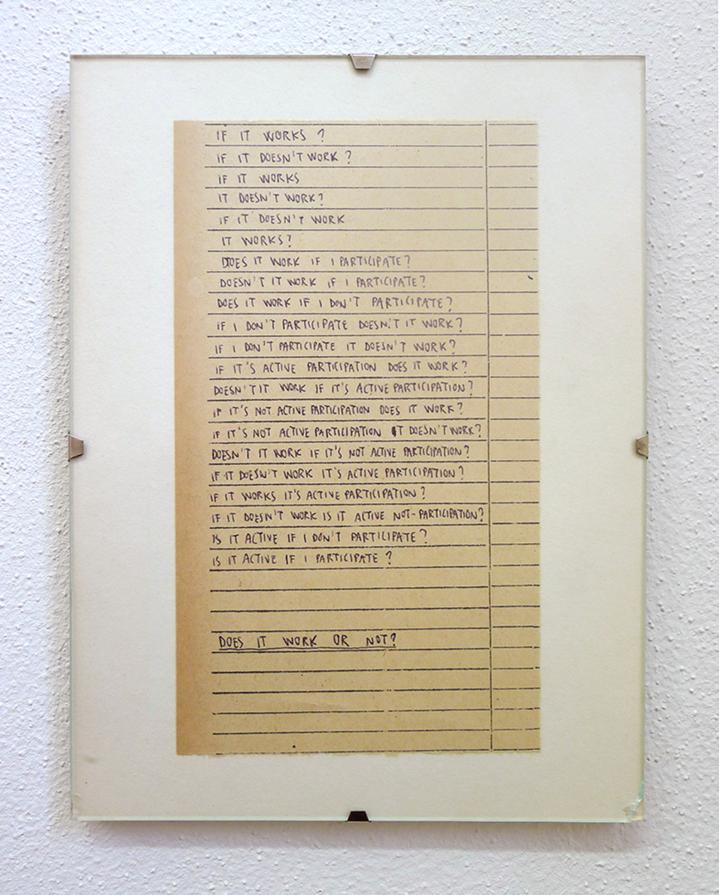 IF IT WORKS ?
IF IT DOESN'T WORK ?
IF IT WORKS
IT DOESN'T WORK?
IF IT DOESN'T WORK
IT WORKS?
DOES IT WORK IF I PARTICIPATE?
DOESN'T IT WORK IF I PARTICIPATE?
DOES IT WORK IF I DON'T PARTICIPATE?
IF I DON'T PARTICIPATE DOESN'T IT WORK?
IF I DON'T PARTICIPATE IT DOESN'T WORK?
IF IT'S ACTIVE PARTICIPATION DOES IT WORK?
DOESN'T IT WORK IF IT'S ACTIVE PARTICIPATION?
IF IT'S NOT ACTIVE PARTICIPATION DOES IT WORK?
IF IT'S NOT ACTIVE PARTICIPATION IT DOESN'T WORK?
DOESN'T IT WORK IF IT'S NOT ACTIVE PARTICIPATION?
IF IT DOESN'T WORK IT'S ACTIVE PARTICIPATION?
IF IT WORKS IT'S ACTIVE PARTICIPATION?
IF IT DOESN'T WORK IS IT ACTIVE NOT-PARTICIPATION?
IS IT ACTIVE IF I DON'T PARTICIPATE?
IS IT ACTIVE IF I PARTICIPATE ?
DOES IT WORK OR NOT?